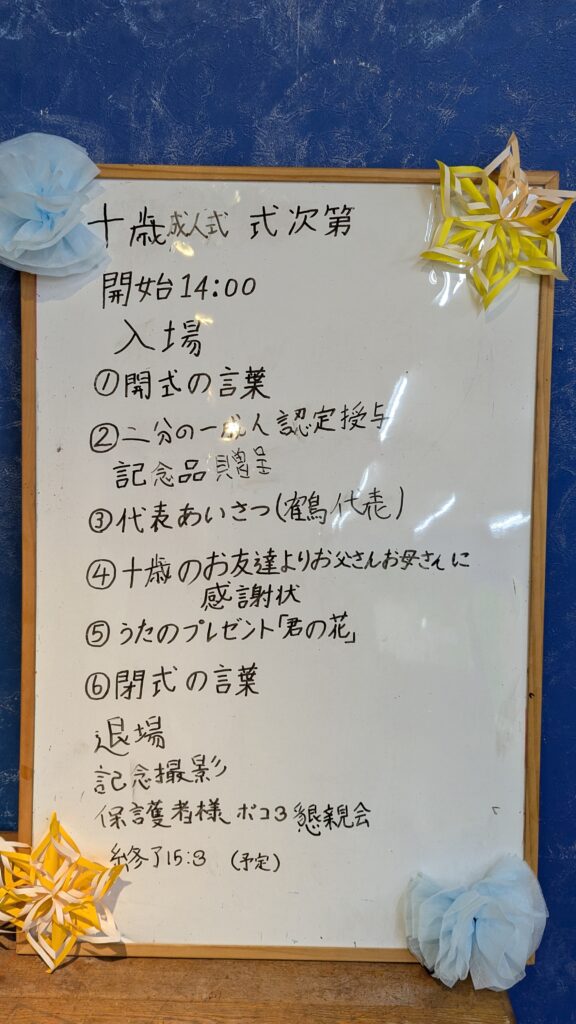 十歳成人式 式次第
開始14:00
入場
①開式の言葉
②二分の一成人認定授与
記念品贈呈
③代表あいさつ(鶴代表)
④十歳のお友達よりお父さんお母さんに
感謝状
⑤うたのプレゼント「君の花」
⑥閉式の言葉
退場
記念撮影
保護者様ポコ3懇親会
終了15:3 (予定)